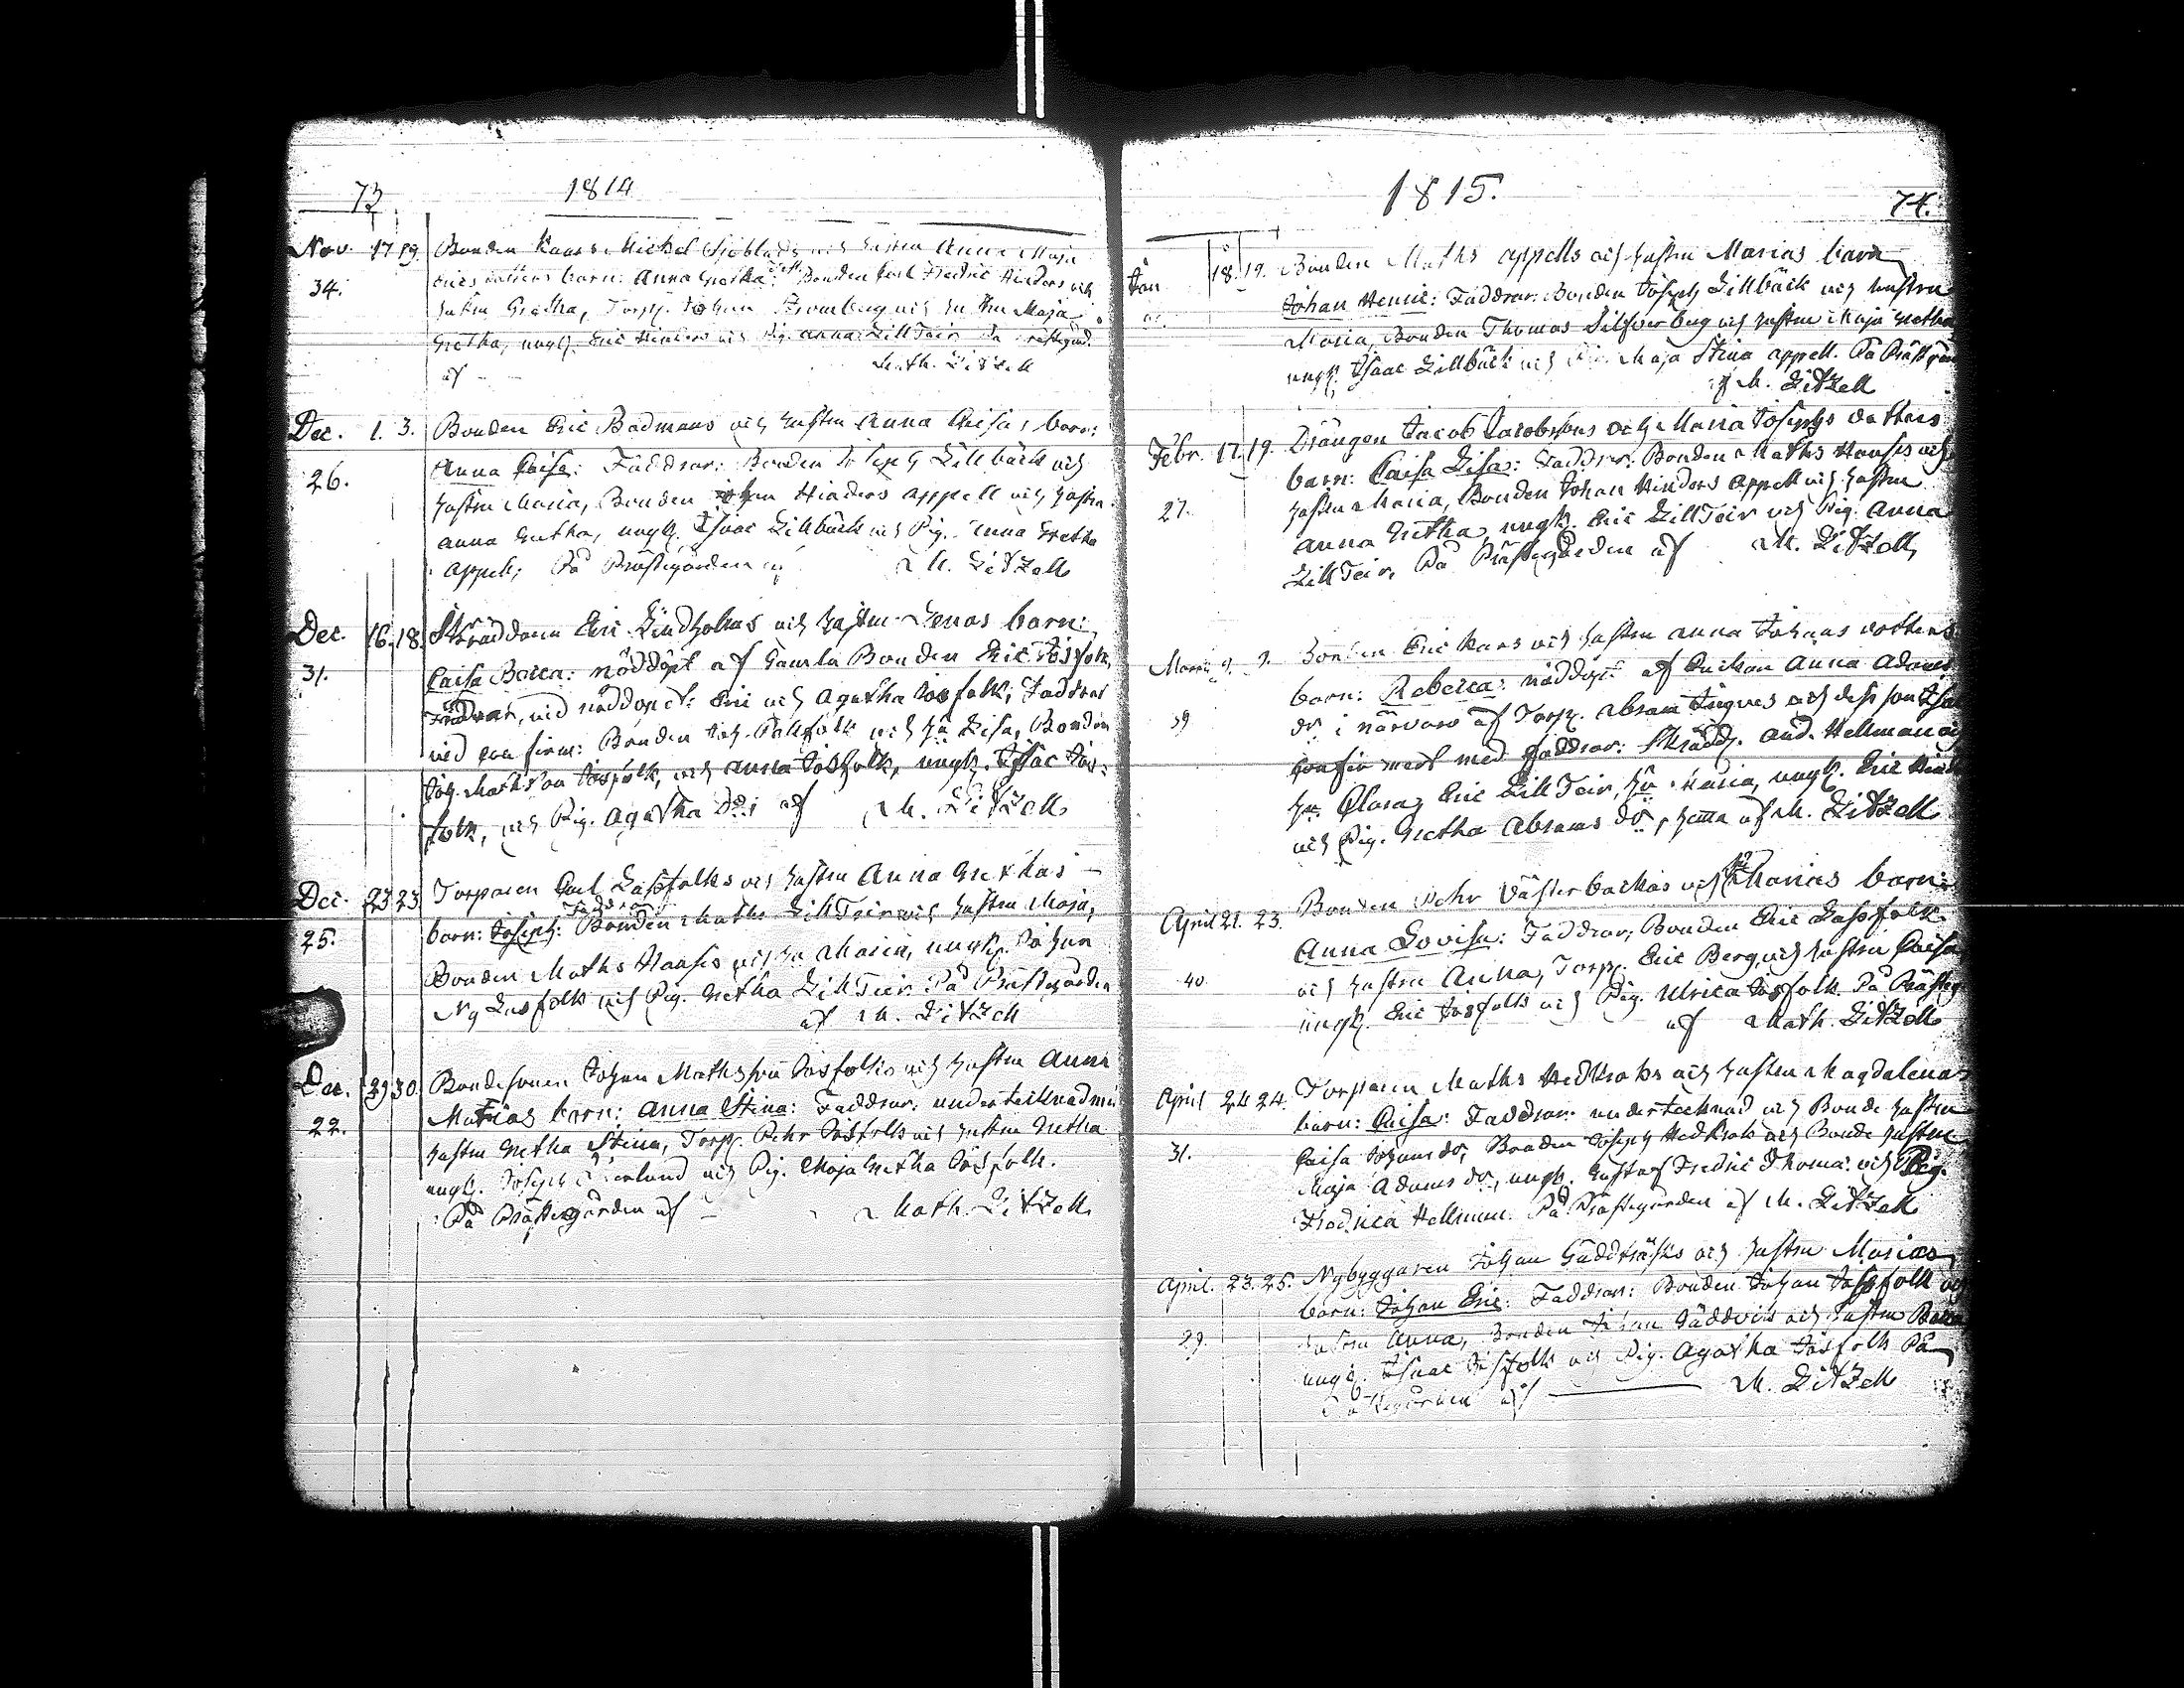 73
1814
Nov. 17 19. Bonden Mickel Sjöblads och hustru Anna Maja
34. barn: Anna Gretha: Bonden Carl Fredric Hinders och
hustru Gretha, Torp. Johan Strömberg och hustru Maja
Gretha, ungk. Eric Hinders och Pig. Anna LillTeir På Prästgård.
af Math. Litzell
Dec. 1. 3. Bonden Eric Bodmans och hustru Anna Caisas barn:
26. Anna Caisa: Faddrar: Bonden Joseph Lillbäck och
hustru Maria, Bonden Johan Hinders Appell och hustru
Anna Gretha, ungk. Isaac Lillbäck och Pig. Anna Gretha
Appell, På Prästegården af M. Litzell
Dec. 16. 18. Skräddaren Eric Lindholms och hustru Lenas barn:
31. Caisa Beata: nöddöpt af Gamla Bonden Eric Josfolk,
Faddrar, vid nöddopet: Eric och Agatha Josfolk; Faddrar
ved confirm: Bonden Joh. Pellfolk och hu Lisa, Bonden
Joh. Mathsson Josfolk, och Anna Josfolk, ungk. Isac Jos:
folk, och Pig. Agatha do; af M. Litzell
Dec. 23 23 Torparen Carl Lassfolks och hustru Anna Grethas
Faddrar
25. barn: Joseph: Bonden Maths LillTeir och hustru Maja,
Bonden Maths Haasis och hu Maria, ungk. Johan
Ny Lassfolk och Pig. Gretha LillTeir. På Prästegården
af M. Litzell
Dec. 29 30. Bondesonen Johan Mathsson Josfolks och hustru Anna
22. Marias barn: Anna Stina: Faddrar: undertecknad min
hustru Gretha Stina, Torp. Pehr Josfolk och hustru Gretha
ungk. Joseph och Pig. Maja Gretha Josfolk.
På Prästegården af Math. Litzell
1815.
74.
Jan 18. 19. Bonden Maths Appells och hustru Marias barn
Johan Henric: Faddrar: Bonden Joseph Lillbäck och hustru
Maria, Bonden Thomas Silfverberg och hustru Maja Gretha
ungk. Isaac Lillbäck och Pig. Maja Stina Appell. På Prästgår
af M. Litzell
Febr. 17 19. Drängen Jacob Jacobssons och Maria Josephs dotters
barn: Caisa Lisa: Faddrar: Bonden Maths Haasis och
27. hustru Maria, Bonden Johan Hinders Appell och hustru
Anna Gretha, ungk. Eric LillTeir och Pig. Anna
LillTeir, På Prästegården af M. Litzell
9. 9. Bonden Eric Kars och hustru Anna Johans dotters
barn: Rebecca: nöddöpt af Enckan Anna Adams
39 do i närvaro af Torp. Abram Ingves och dess son
Confirmerat med faddrar: Skrädd. And. Hellman och
hu. Clara, Eric LillTeir, hu Maria, ungk. Eric
och Pig. Gretha Abrams do, hemma af M. Litzell
April 21. 23. Bonden Pehr Västerbackas och hu Marias barn:
Anna Lovisa: Faddrar; Bonden Eric Lassfolk
40 och hustru Anna, Torp. Eric Berg, och hustru Caisa
ungk. Eric Josfolk och Pig. Ulrica Josfolk. På Prästeg
af Math. Litzell
April 24 24. Torparen Maths Hedkroks och hustru Magdalenas
barn: Caisa: Faddrar: undertecknad och Bonde hustru
31. Caisa Johans do, Bonden Joseph Hedkrok och Bonde hustru
Maja Adams do, ungk. Gustaf Fredric Thoma och Pig.
Fredrica Hellman. På Prästegården af M. Litzell
April. 23. 25. Nybyggaren Johan Gäddträsks och hustru Marias
barn: Johan Eric: Faddrar: Bonden Johan Josfolk och
29. hustru Anna, Bonden Johan Gäddvik och hustru
ungk. Isaac Josfolk och Pig. Agatha Josfolk På
Prästegården af M. Litzell